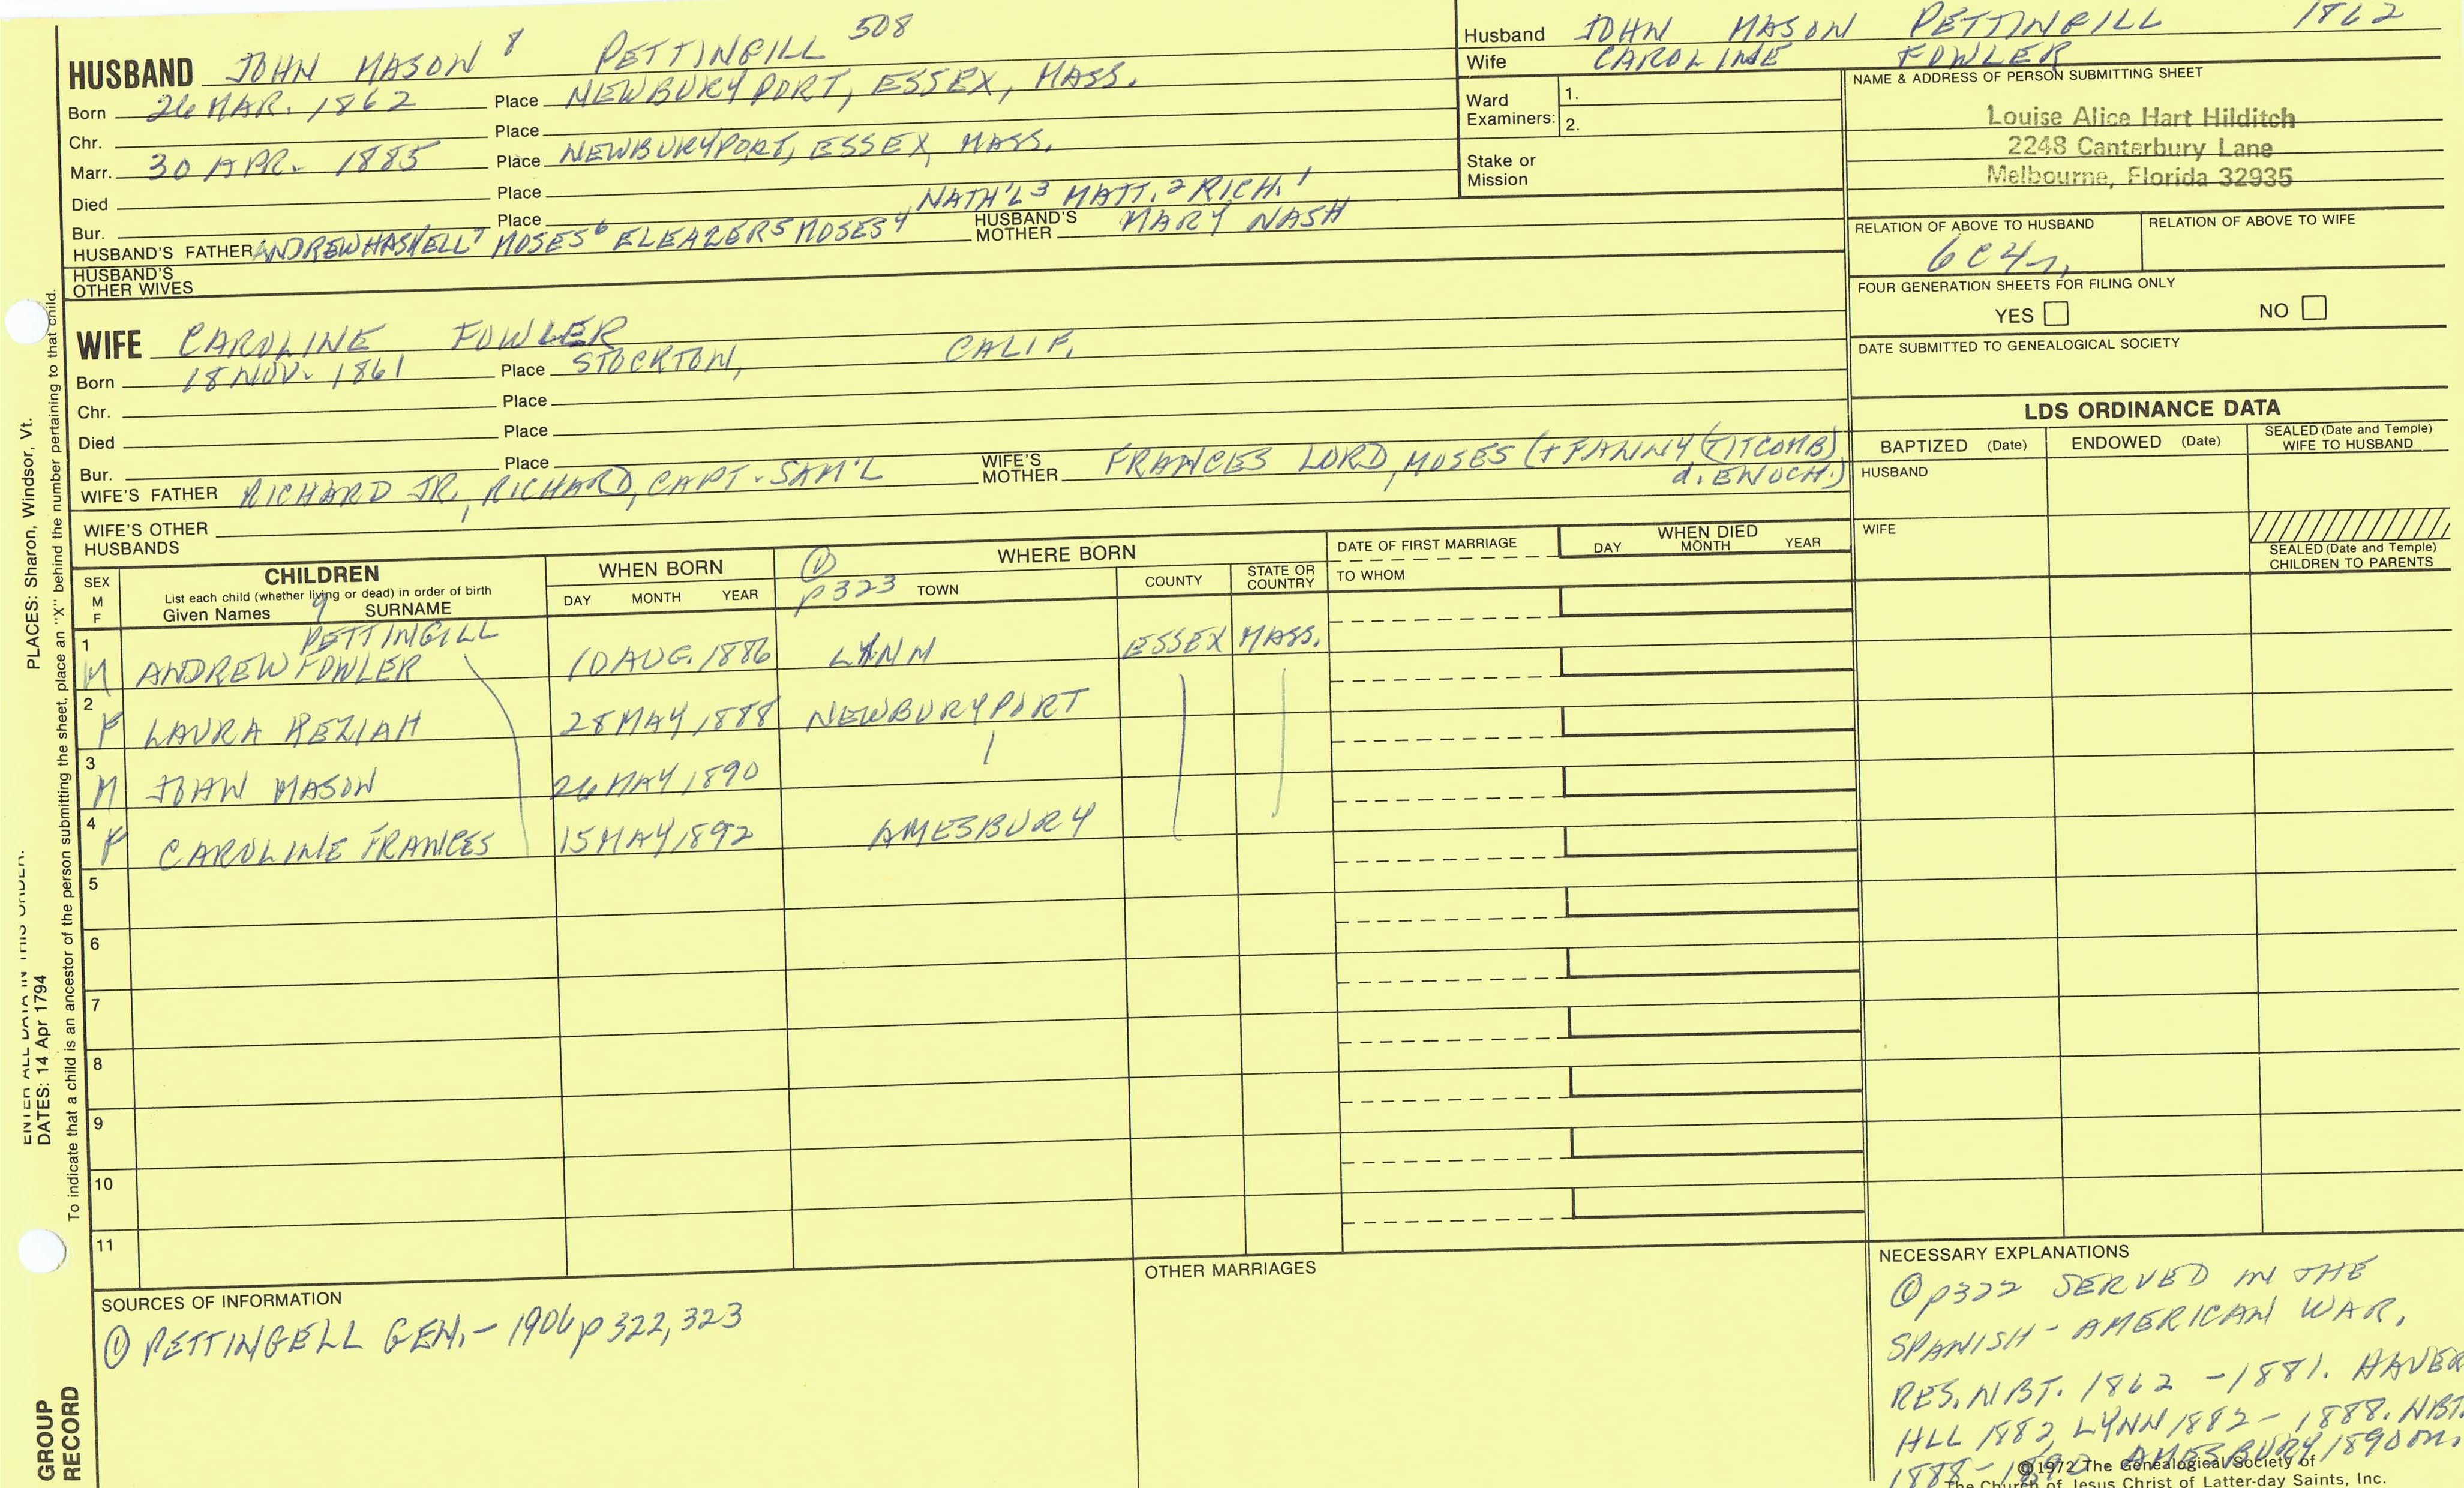 HUSBAND JOHN MASON 8 PETTINGILL 508
Born 26 MAR. 1862 Place NEWBURYPORT, ESSEX, MASS.
Chr. Place
Marr. 30 APR. 1885 Place NEWBURYPORT, ESSEX, MASS.
Died Place
NATH'L 3 MATT. 2 RICH. 1
Bur. Place
HUSBAND'S FATHER ANDREW HASKELL 7 MOSES 6 ELEAZER 5 MOSES 4 HUSBAND'S MOTHER MARY NASH
HUSBAND'S OTHER WIVES
Husband JOHN MASON PETTINGILL 1862
Wife CAROLINE FOWLER
Ward Examiners: 1.
2.
Stake or Mission
NAME & ADDRESS OF PERSON SUBMITTING SHEET
Louise Alice Hart Hilditch
2248 Canterbury Lane
Melbourne, Florida 32935
RELATION OF ABOVE TO HUSBAND RELATION OF ABOVE TO WIFE
6C4r
FOUR GENERATION SHEETS FOR FILING ONLY
YES NO
DATE SUBMITTED TO GENEALOGICAL SOCIETY
WIFE CAROLINE FOWLER
Born 18 NOV. 1861 Place STOCKTON, CALIF.
Chr. Place
Died Place
Bur. Place
WIFE'S FATHER RICHARD JR, RICHARD, CAPT. SAM'L WIFE'S MOTHER FRANCES LORD, MOSES (+ FANNY (TITCOMB)
d. ENOCH.)
WIFE'S OTHER HUSBANDS
LDS ORDINANCE DATA
BAPTIZED (Date) ENDOWED (Date) SEALED (Date and Temple) WIFE TO HUSBAND
HUSBAND
WIFE
SEALED (Date and Temple) CHILDREN TO PARENTS
SEX M F CHILDREN
List each child (whether living or dead) in order of birth
Given Names 9 SURNAME
WHEN BORN
DAY MONTH YEAR
① p323 WHERE BORN
TOWN COUNTY STATE OR COUNTRY
DATE OF FIRST MARRIAGE
TO WHOM
WHEN DIED
DAY MONTH YEAR
PETTINGILL
1 M ANDREW FOWLER 10 AUG. 1886 LYNN ESSEX MASS.
2 F LAURA KEZIAH 28 MAY 1888 NEWBURYPORT
3 M JOHN MASON 26 MAY 1890
4 F CAROLINE FRANCES 15 MAY 1892 AMESBURY
5
6
7
8
9
10
11
SOURCES OF INFORMATION
① PETTINGELL GEN. - 1906 p 322, 323
OTHER MARRIAGES
NECESSARY EXPLANATIONS
① p322 SERVED IN THE
SPANISH-AMERICAN WAR.
RES. NBT. 1862 - 1881. HAVER
HLL 1882, LYNN 1882 - 1888. NBT.
1888-1890 AMESBURY 1890 on.
©1972 The Genealogical Society of
The Church of Jesus Christ of Latter-day Saints, Inc.
PLACES: Sharon, Windsor, Vt.
ENTER ALL DATA IN THIS ORDER:
DATES: 14 Apr 1794
To indicate that a child is an ancestor of the person submitting the sheet, place an "X" behind the number pertaining to that child.
GROUP
RECORD